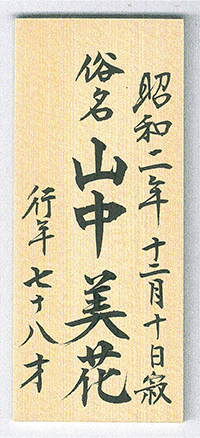 昭和二年十二月十日寂
俗名 山中美花
行年七十八才